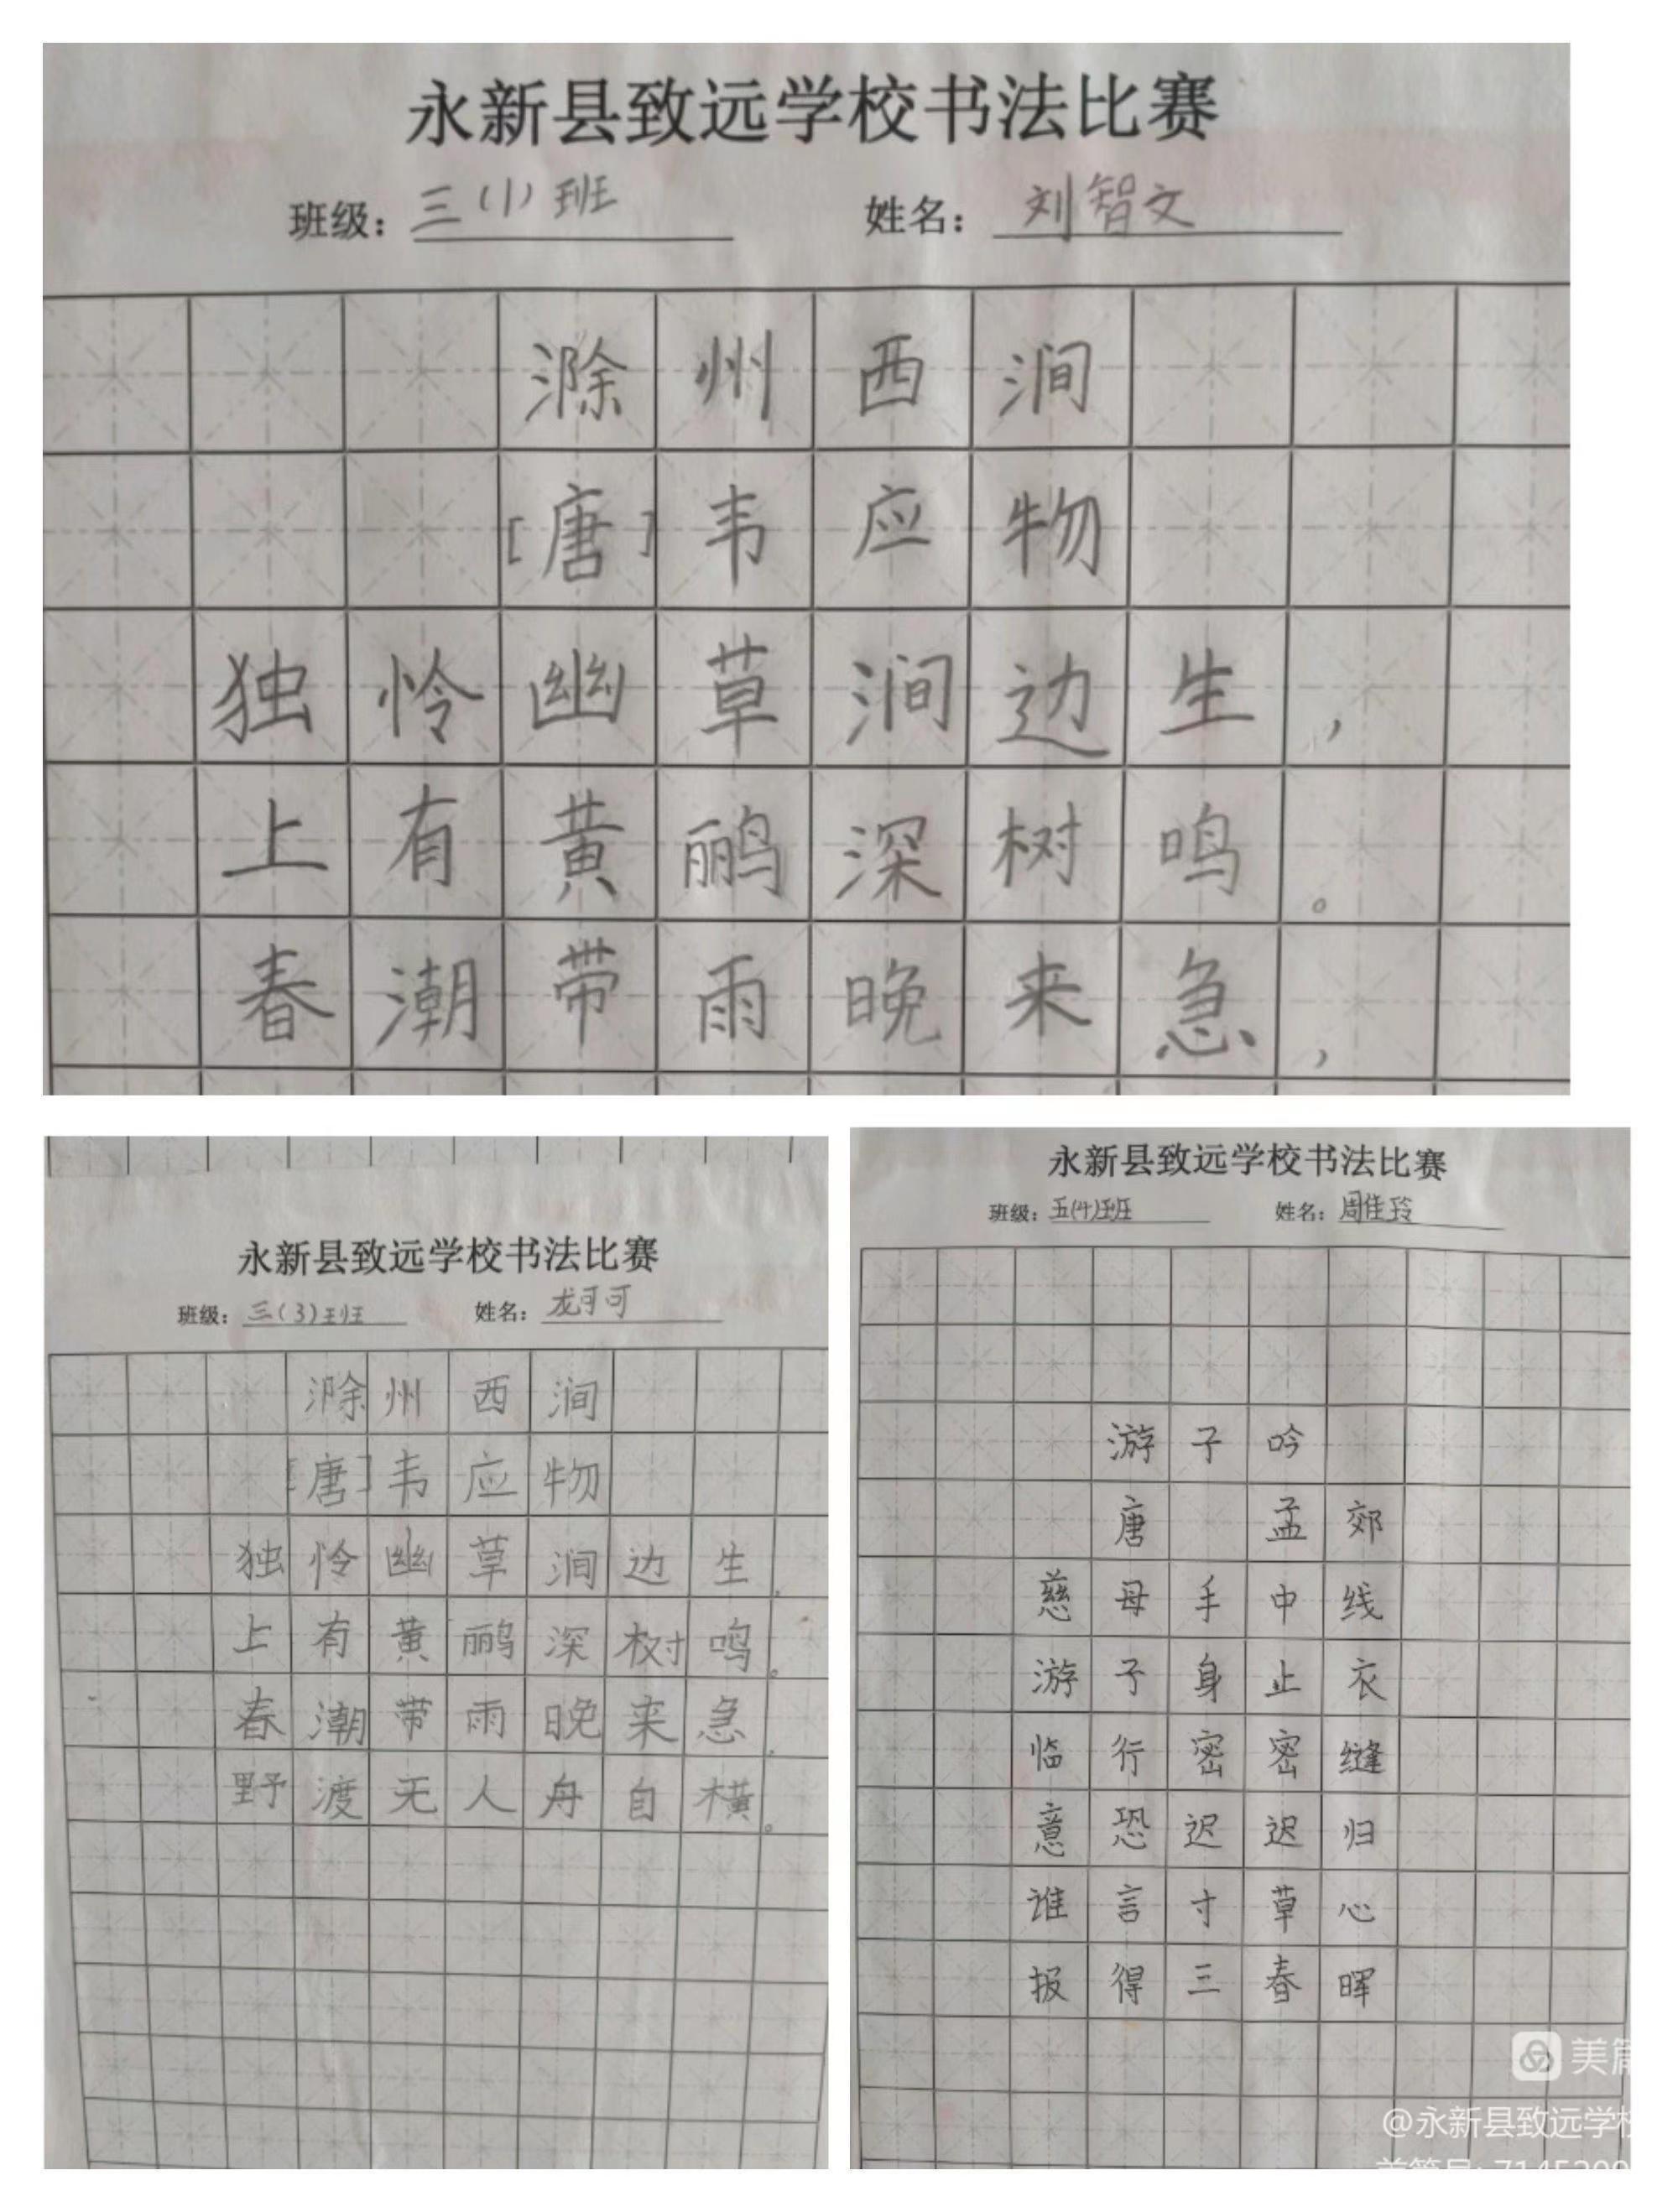 永新县致远学校书法比赛
班级：三(1)班 姓名：刘智文
滁州西涧
[唐]韦应物
独怜幽草涧边生，
上有黄鹂深树鸣。
春潮带雨晚来急，
永新县致远学校书法比赛
班级：三(3)班 姓名：龙可可
滁州西涧
[唐]韦应物
独怜幽草涧边生，
上有黄鹂深树鸣。
春潮带雨晚来急，
野渡无人舟自横。
永新县致远学校书法比赛
班级：五(4)班 姓名：周佳玲
游子吟
唐 孟郊
慈母手中线
游子身止衣
临行密密缝
意恐迟迟归
谁言寸草心
报得三春晖
美篇
@永新县致远学校